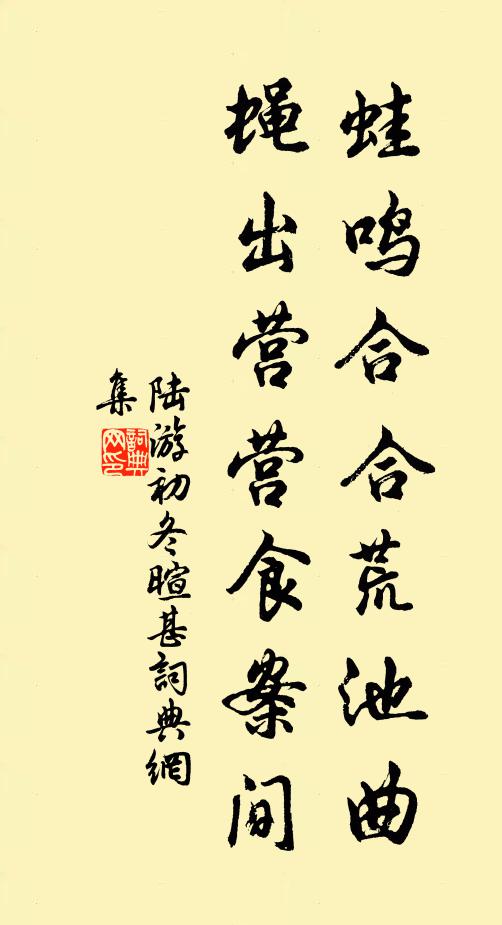 蛙鸣合合荒池曲
蝇出营营食案间
陆游初冬暄甚詞典網
集
詞典
网印